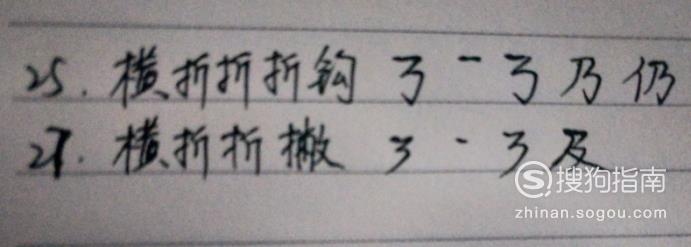 25. 横折折折钩 ㄋ 一 ㄋ 乃 仍
27. 横折折撇 ㄋ - ㄋ 及
搜狗指南
zhinan.sogou.com